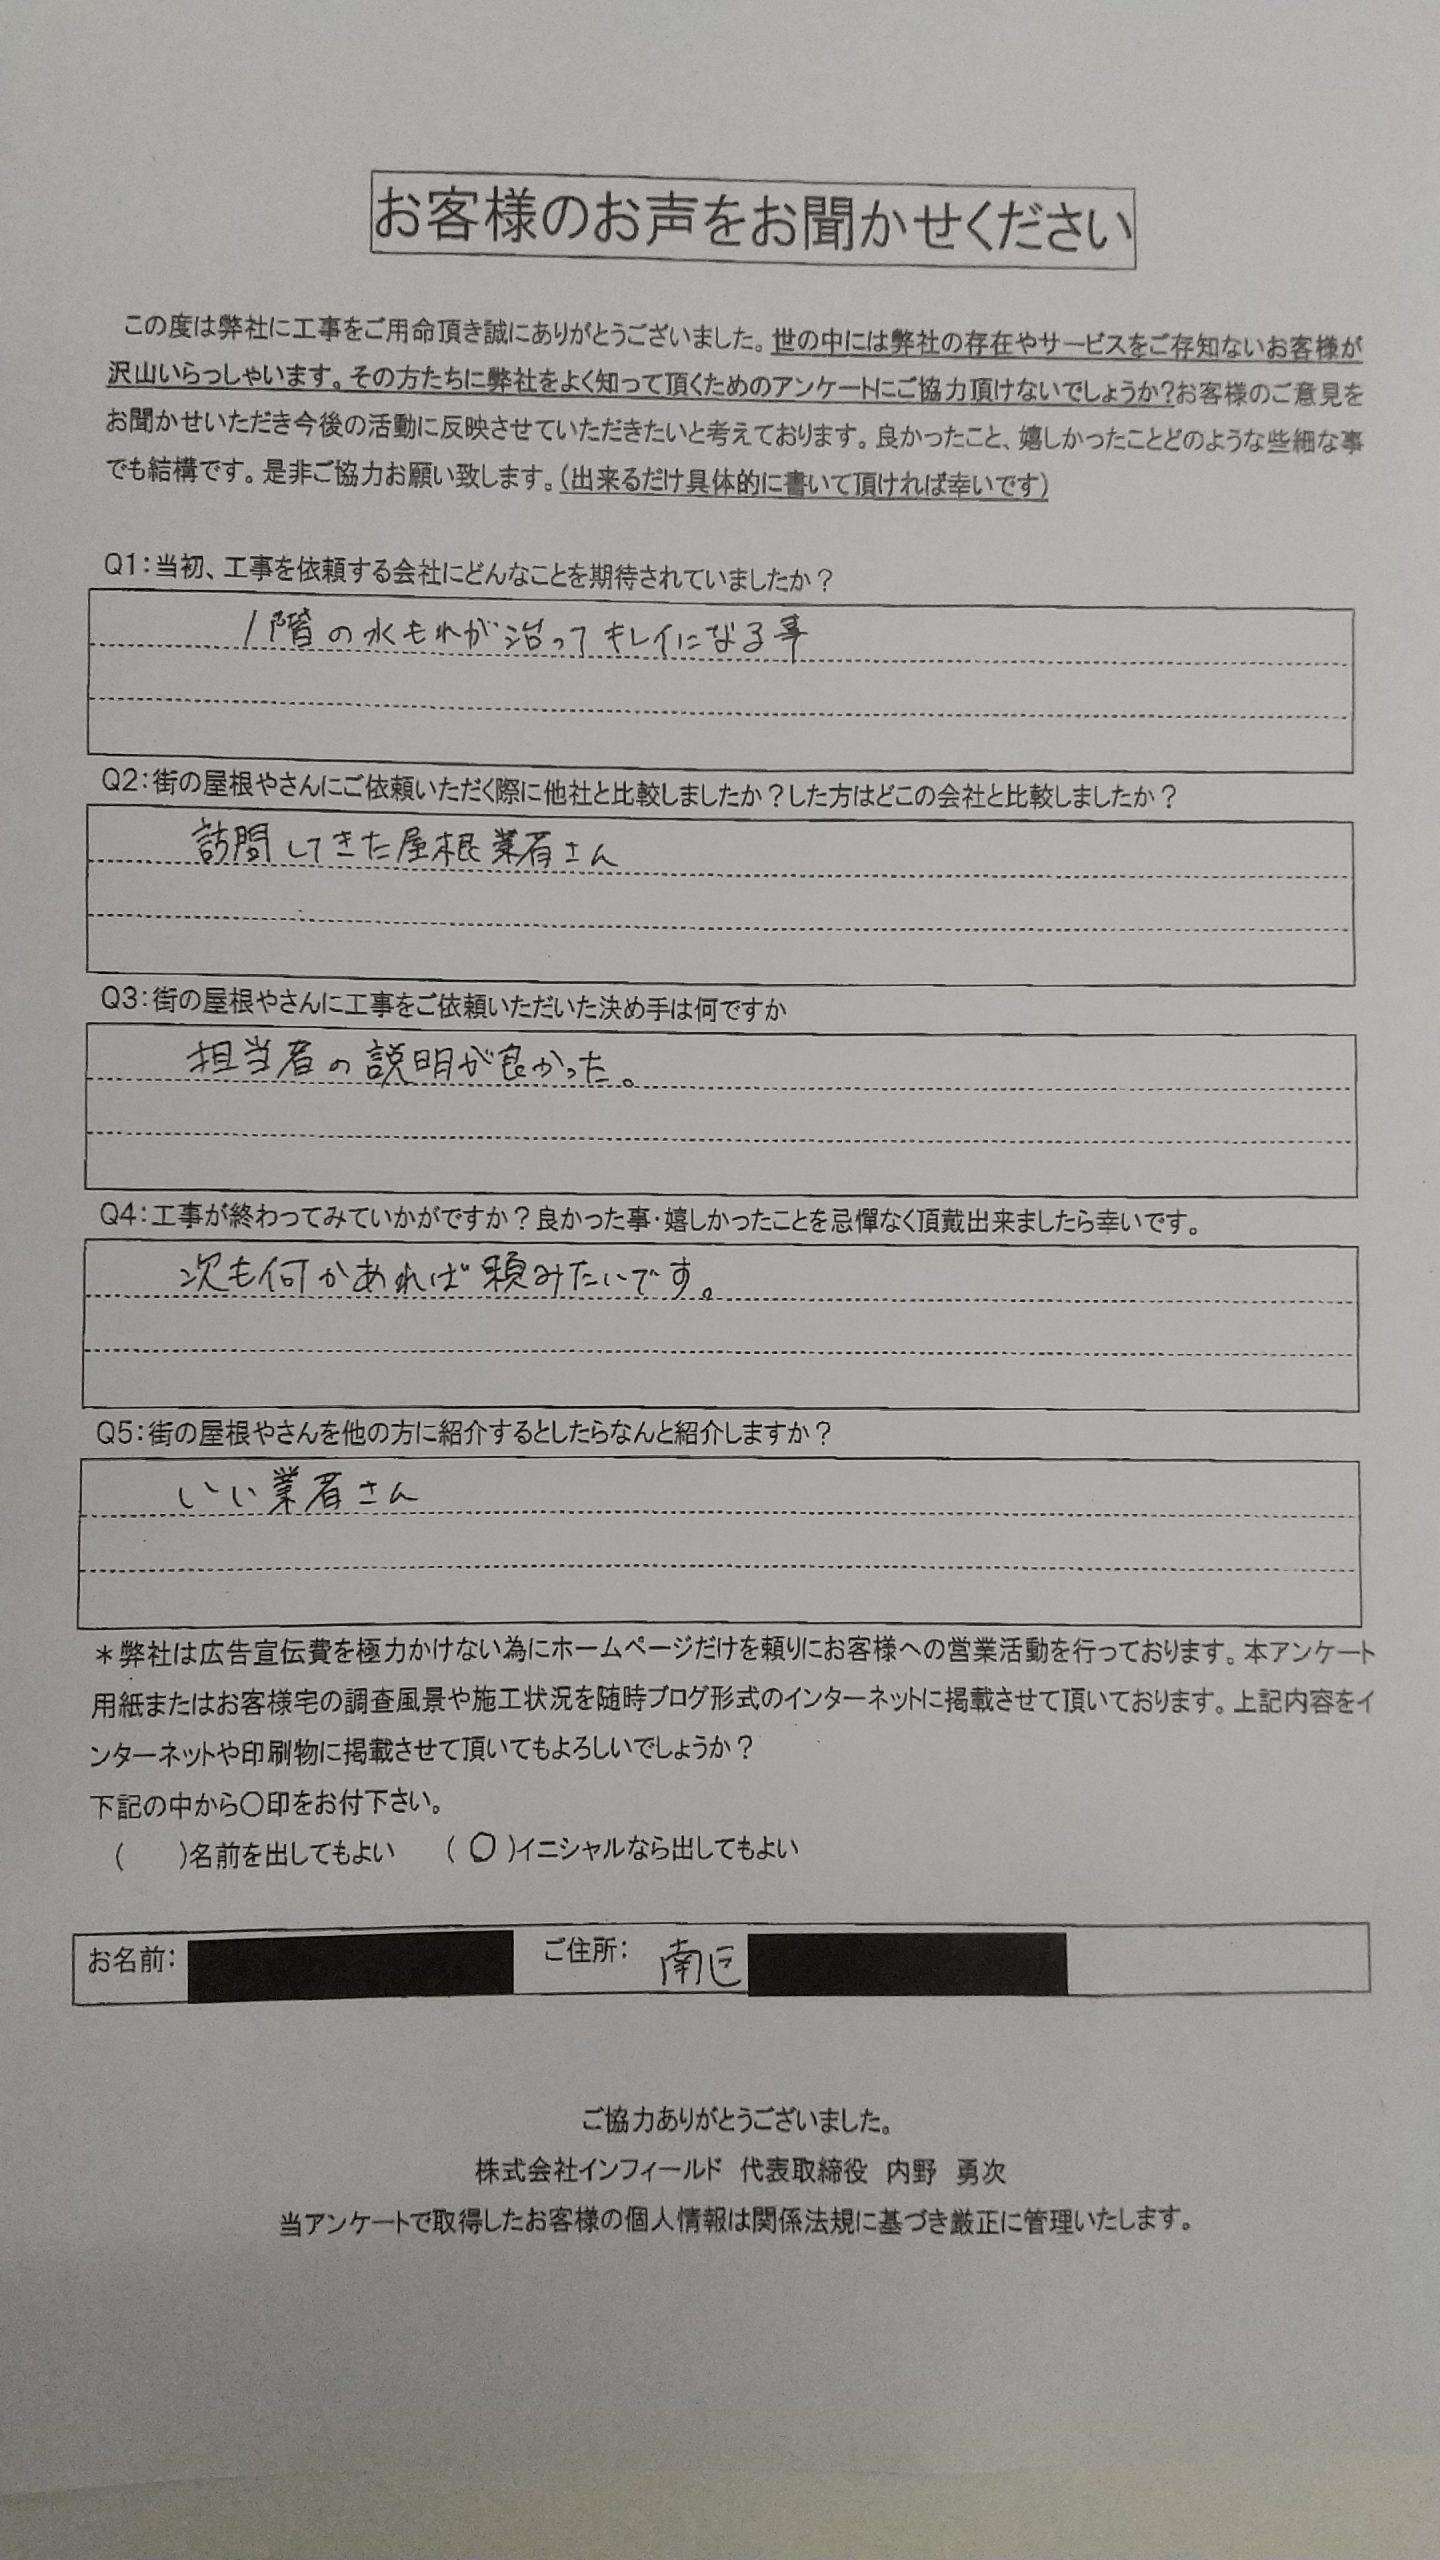 お客様のお声をお聞かせください
この度は弊社に工事をご用命頂き誠にありがとうございました。世の中には弊社の存在やサービスをご存知ないお客様が
沢山いらっしゃいます。その方たちに弊社をよく知って頂くためのアンケートにご協力頂けないでしょうか?お客様のご意見を
お聞かせいただき今後の活動に反映させていただきたいと考えております。良かったこと、嬉しかったことどのような些細な事
でも結構です。是非ご協力お願い致します。(出来るだけ具体的に書いて頂ければ幸いです)
Q1:当初、工事を依頼する会社にどんなことを期待されていましたか?
1階の水もれが治ってキレイになる事
Q2:街の屋根やさんにご依頼いただく際に他社と比較しましたか?した方はどこの会社と比較しましたか?
訪問してきた屋根業者さん
Q3:街の屋根やさんに工事をご依頼いただいた決め手は何ですか
担当者の説明が良かった。
Q4:工事が終わってみていかがですか?良かった事・嬉しかったことを忌憚なく頂戴出来ましたら幸いです。
次も何かあれば頼みたいです。
Q5:街の屋根やさんを他の方に紹介するとしたらなんと紹介しますか?
いい業者さん
*弊社は広告宣伝費を極力かけない為にホームページだけを頼りにお客様への営業活動を行っております。本アンケート
用紙またはお客様宅の調査風景や施工状況を随時ブログ形式のインターネットに掲載させて頂いております。上記内容をイ
ンターネットや印刷物に掲載させて頂いてもよろしいでしょうか?
下記の中から〇印をお付下さい。
(　　)名前を出してもよい　(〇)イニシャルなら出してもよい
お名前:　ご住所: 南区
ご協力ありがとうございました。
株式会社インフィールド 代表取締役 内野 勇次
当アンケートで取得したお客様の個人情報は関係法規に基づき厳正に管理いたします。